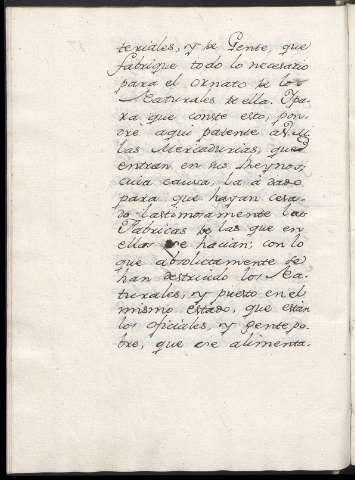 teriales, y de Gente, que
fabrique todo lo necesario
para el ornato de los
Naturales de ella. Ypa-
ra que conste esto, pon-
dre aqui patente á V.M.
las Mercadurias, que
entran en sus Reynos,
cuia causa, la á dado
para que hayan cesa-
do lastimosamente las
Fabricas de las que en
ellos se hacian; con lo
que absolutamente se
han destruido los Na-
turales, y puesto en el
mismo estado, que están
los oficiales, y gente po-
bre, que se alimenta-